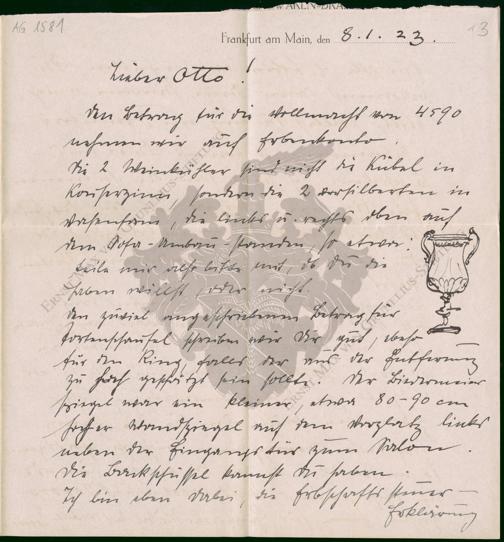 AG 1981
13
Frankfurt am Main, den 8.1.23.
Lieber Otto!
Den Betrag für die Vollmacht von 4590
nehmen wir auf Erbenkonto.
Die 2 Weinkühler sind nicht die Kübel in
Kaiserzinn, sondern die 2 versilberten in
Vasenform, die links u. rechts oben auf
dem Sofa-Umbau standen, so etwa:
Teile mir also bitte mit, ob Du die
haben willst, oder nicht.
Den zuviel angeschriebenen Betrag für
Tortenschaufel schreiben wir Dir gut, ebenso
für den Ring, falls der aus der Entfernung
zu hoch geschätzt sein sollte. Der Biedermeier
Spiegel war ein kleiner, etwa 80-90 cm
hoher Wandspiegel auf dem Vorplatz links
neben der Eingangstür zum Salon.
Die Backschüssel kannst Du haben.
Ich bin eben dabei, die Erbschaftssteuer-
Erklärung